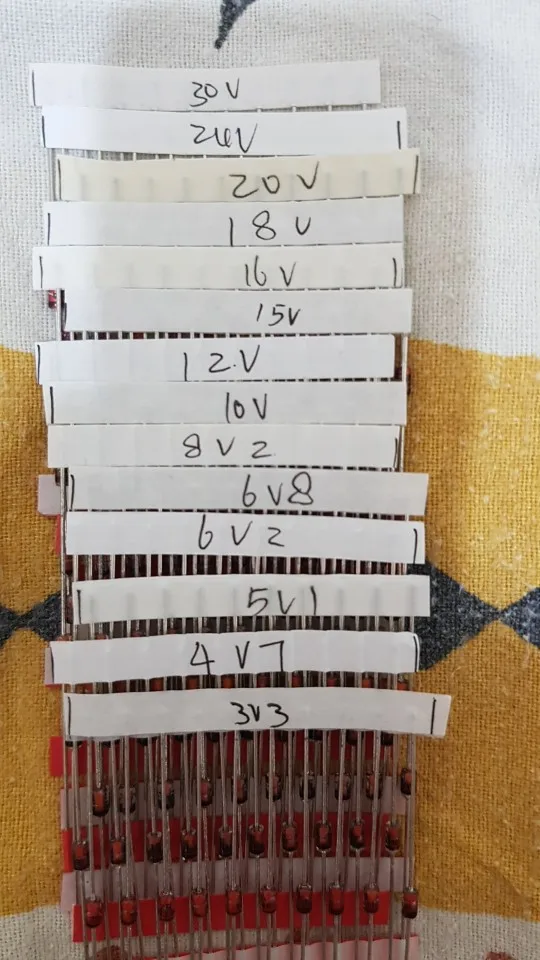 30V
24V
20V
18V
16V
15V
12.V
10V
8V2
6V8
6V2
5V1
4V7
3V3